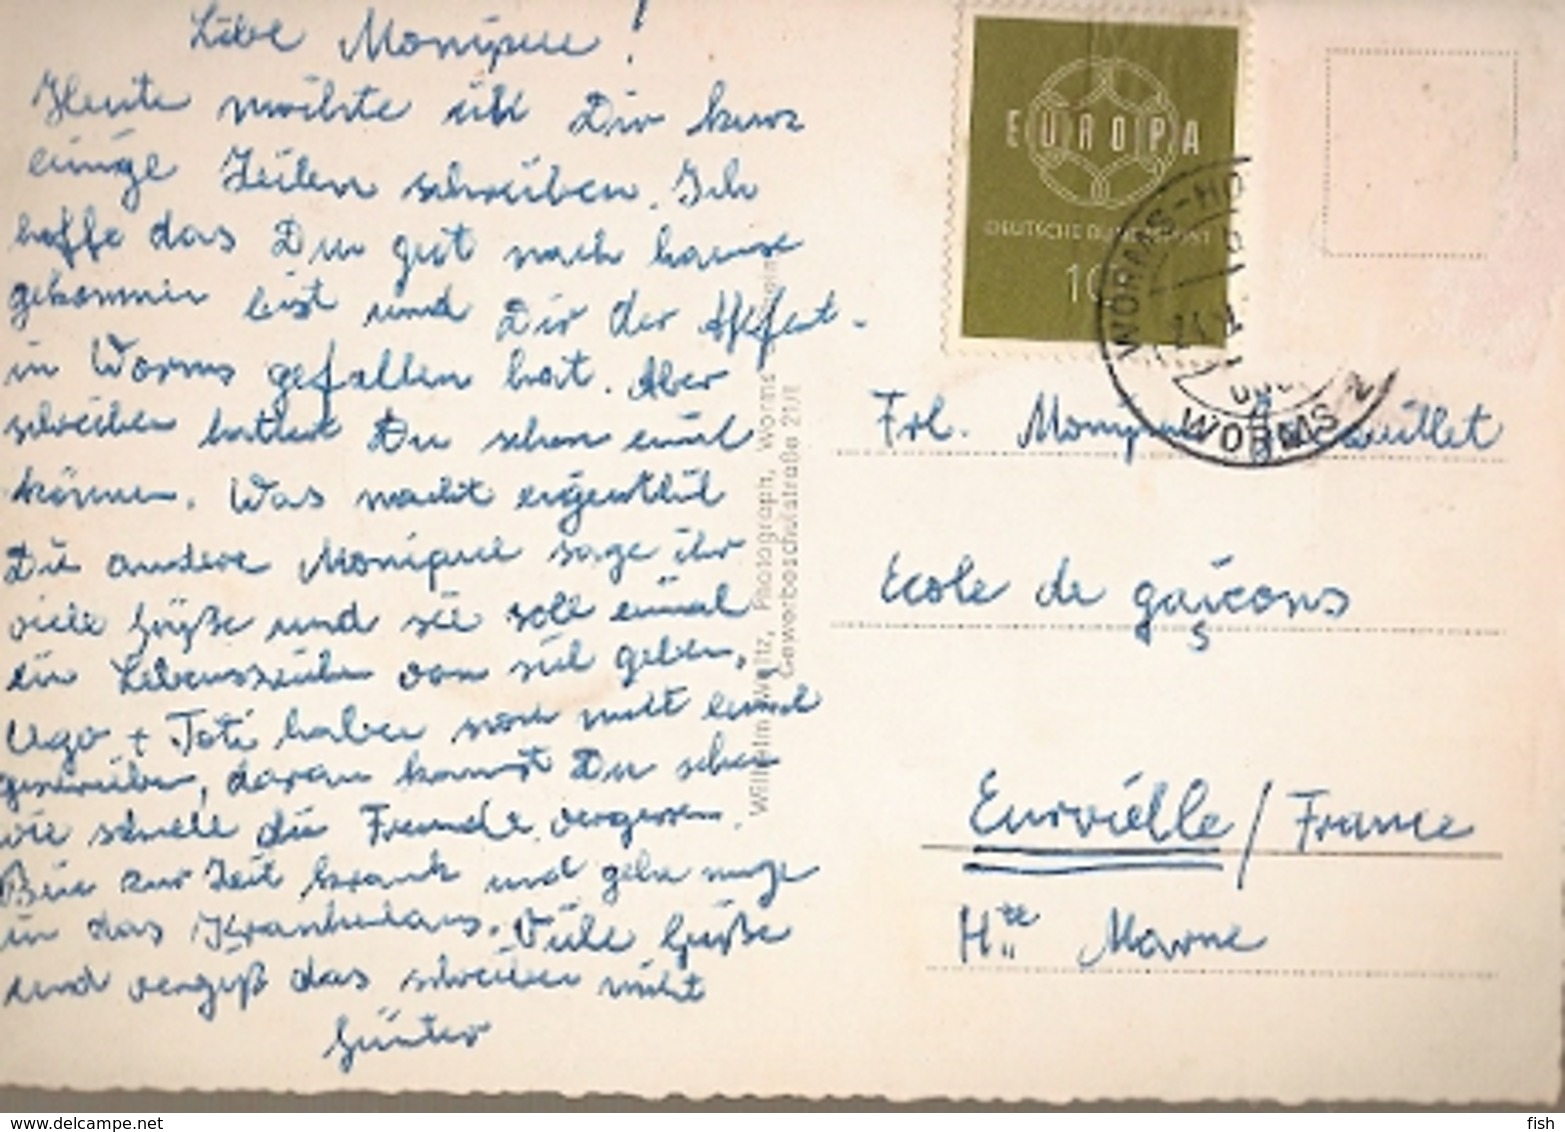 Liebe Monique!
Heute möchte ich Dir kurz
einige Zeilen schreiben. Ich
hoffe das Du gut nach hause
gekommen bist und Dir der
in Worms gefallen hat. Aber
schreiben hättest Du schon einmal
können. Was macht eigentlich
Die andere Monique sage ihr
viele Grüße und sie soll einmal
ein Lebenszeichen von sich geben.
Ugo + Toti haben noch nicht einmal
geschrieben, daran kannst Du sehen
wie schnell die Freunde vergessen.
Bin zur Zeit krank und gehe morgen
in das Krankenhaus. Viele Grüße
und vergiß das schreiben nicht
Günter
Wilhelm Weltz, Photograph, Worms
Gewerbeschulstraße 21/1
EUROPA
DEUTSCHE BUNDESPOST
10
WORMS-HO
WORMS 2
Frl. Monique
Ecole de garçons
Eurvielle / France
Hte Marne
www.delcampe.net
fish